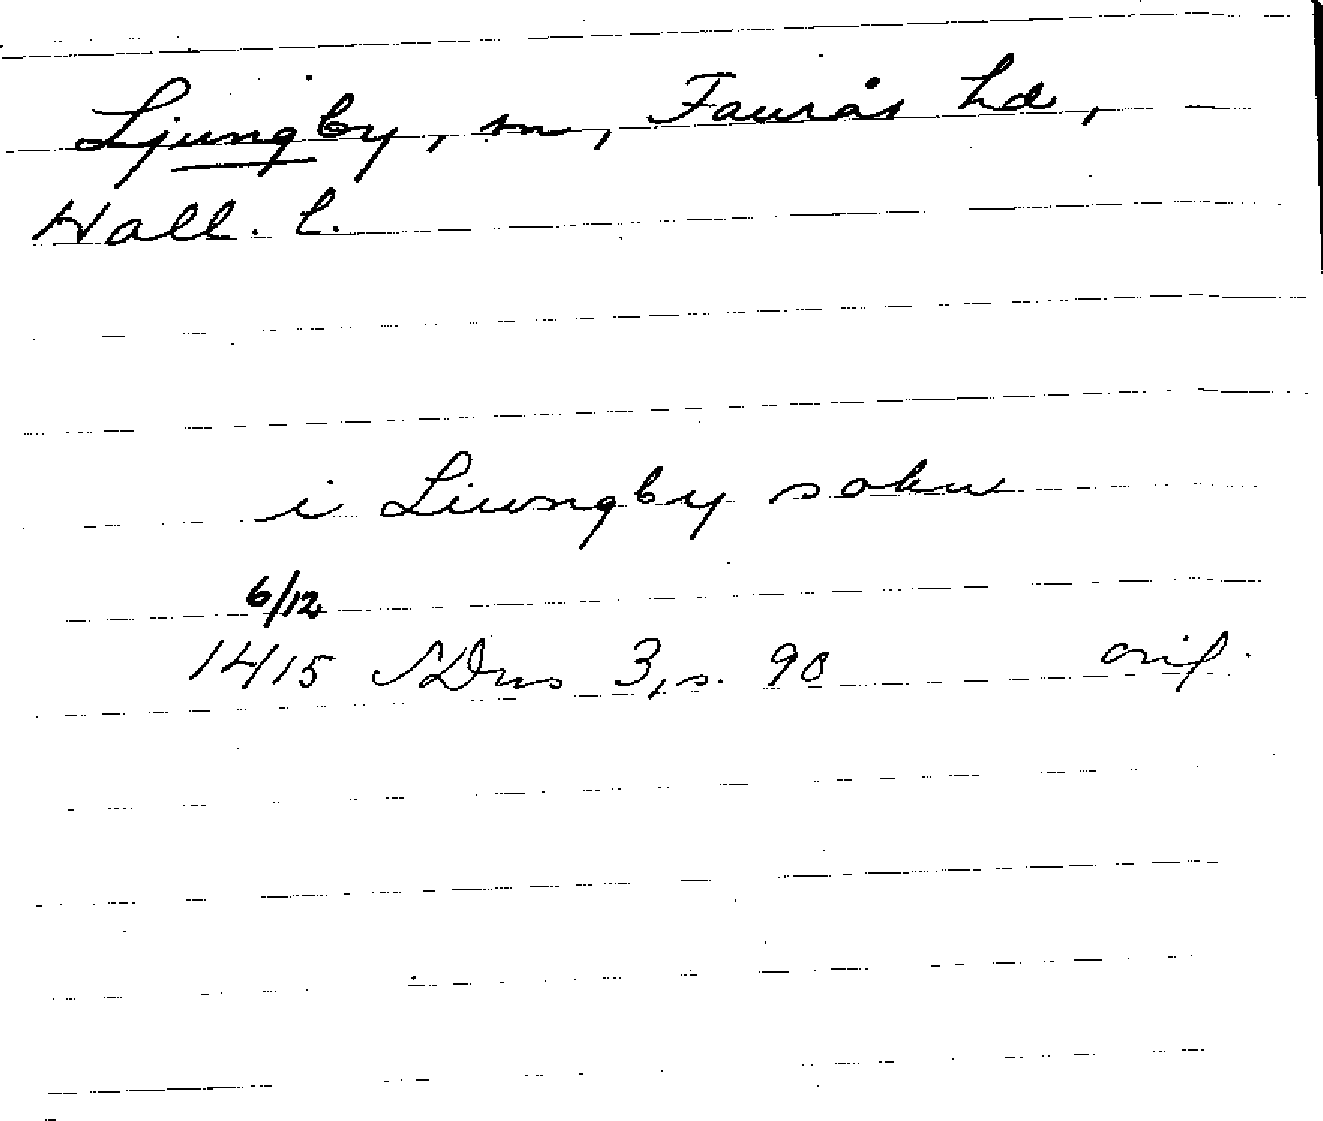 Ljungby, sn, Faurås hd,
Hall. l.
i Liungby sokn
6/12
1415 SDns 3, s. 90 orig.